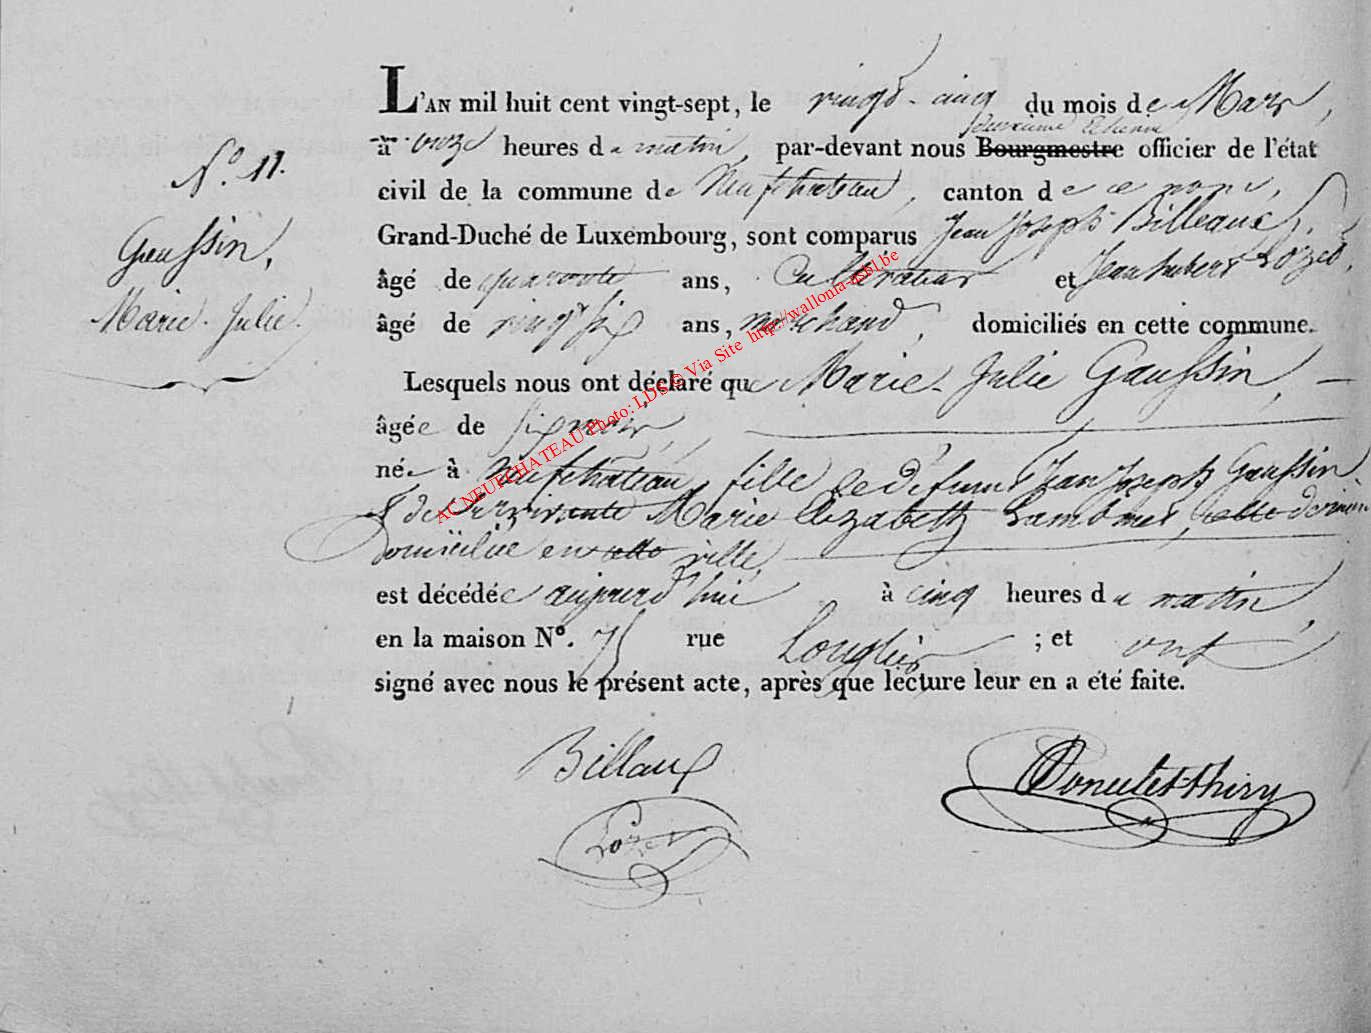 L'AN mil huit cent vingt-sept, le vingt-cinq du mois de Mars,
deuxième Echevin
à onze heures du matin, par-devant nous Bourgmestre officier de l'état
N.º 11.
civil de la commune de Neufchateau, canton de ce nom,
Gaussin,
Marie-Julie.
Grand-Duché de Luxembourg, sont comparus Jean Joseph Billeaux,
âgé de quarante ans, Cultivateur et Jean hubert Lozet,
âgé de vingt six ans, marchand, domiciliés en cette commune.
Lesquels nous ont déclaré que Marie-Julie Gaussin
âgée de six mois
née à Neufchateau, fille de défunt Jean Joseph Gaussin
& de survivante Marie Elizabeth Lambinet, cette dernière
domiciliée en cette ville,
est décédée aujourd'hui à cinq heures du matin
en la maison Nº. 75 rue Longlier ; et ont
signé avec nous le présent acte, après que lecture leur en a été faite.
Billaux
Lozet
AC NEUFCHATEAU Photo: LDS © Via Site http://wallonia-asbl.be